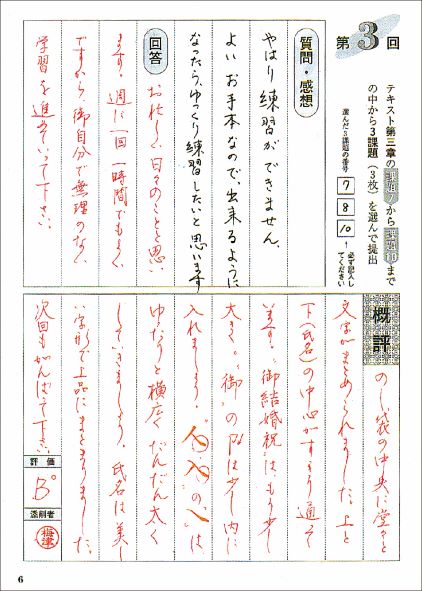 第3回
テキスト第三章の課題7から課題10まで
の中から3課題（3枚）を選んで提出
選んだ3課題の番号
7
8
10
↑必ず記入し
てください
質問・感想
やはり練習ができません。
よいお手本なので、出来るように
なったら、ゆっくり練習したいと思います
回答
お忙しい日々のことと思い
ます。週に一回一時間でもよい
ですから、御自分で無理のない
学習を進めていって下さい。
概評
のし袋の中央に堂々と
文字がまとめられました。上と
下（氏名）の中心がすっきり通って
います。“御結婚祝”はもう少し
大きく。“御”の“卩”は少し内に
入れましょう。
は
ゆったりと横広くだんだん太く
していきましょう。氏名は美し
い字形で上品にまとまりました。
次回もがんばって下さい。
評価
B°
添削者
梅津
6